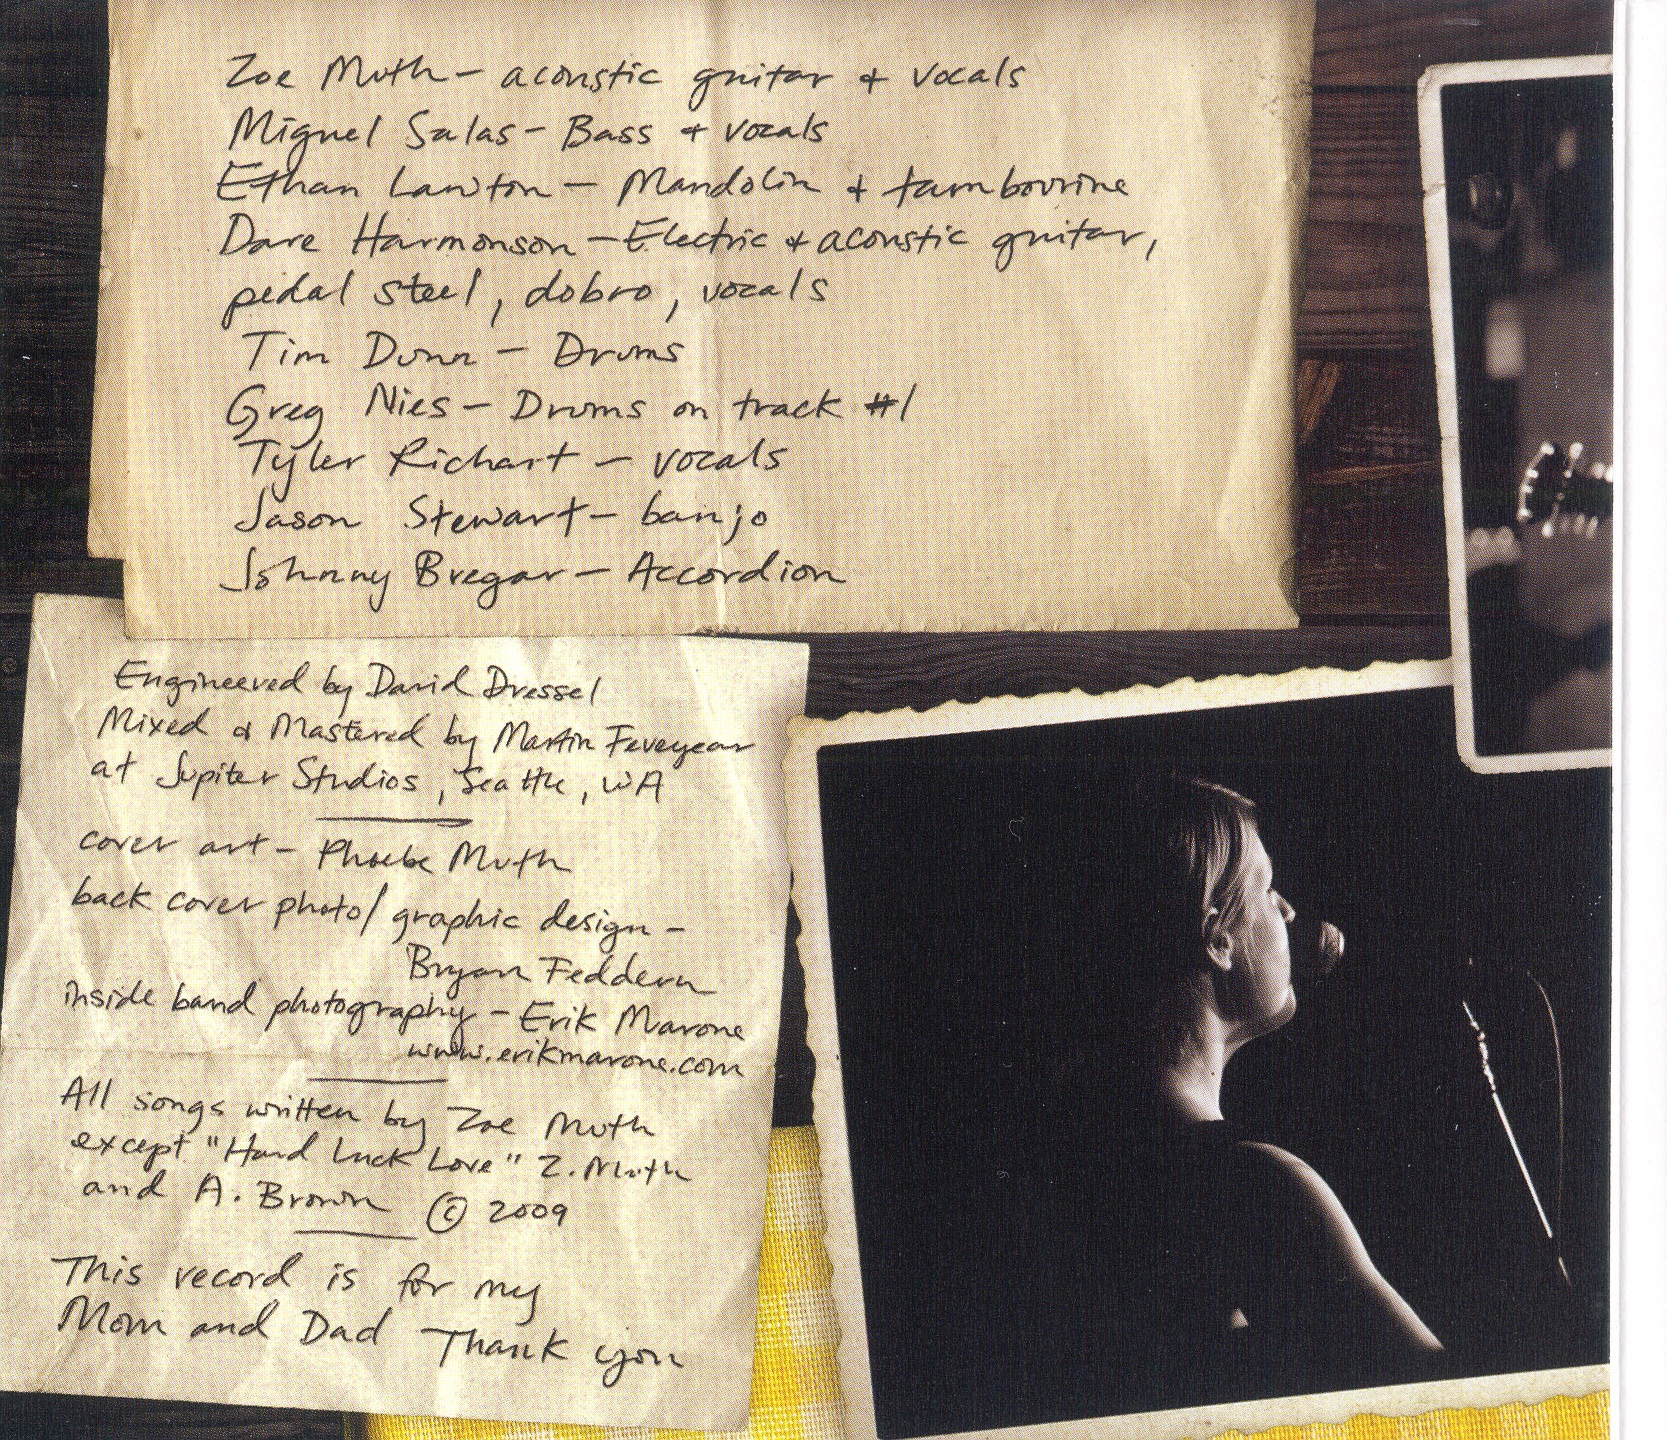 Zoe Muth - acoustic guitar & vocals
Miguel Salas - Bass & vocals
Ethan Lawton - Mandolin & tambourine
Dave Harmonson - Electric & acoustic guitar,
pedal steel, dobro, vocals
Tim Dunn - Drums
Greg Nies - Drums on track #1
Tyler Richart - vocals
Jason Stewart - banjo
Johnny Bregar - Accordion
Engineered by David Dressel
Mixed & Mastered by Martin Feveyear
at Jupiter Studios, Seattle, WA
cover art - Phoebe Muth
back cover photo/graphic design -
Bryan Feddern
inside band photography - Erik Marone
www.erikmarone.com
All songs written by Zoe Muth
except "Hard Luck Love" Z. Muth
and A. Brown © 2009
This record is for my
Mom and Dad Thank you